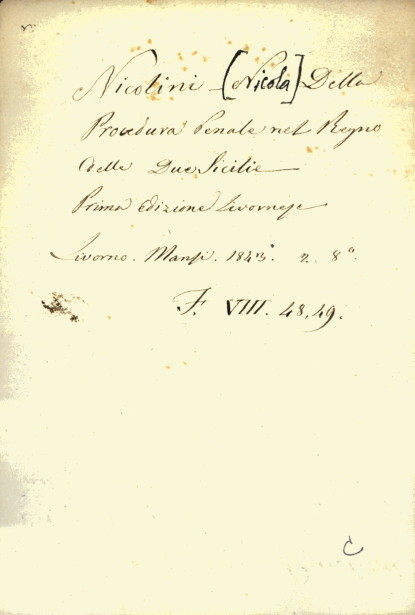 Nicolini [Nicola] Della
Procedura Penale nel Regno
delle Due Sicilie
Prima edizione Livornese
Livorno. Mansi. 1843. 2. 8°.
F. VIII. 48, 49.
C